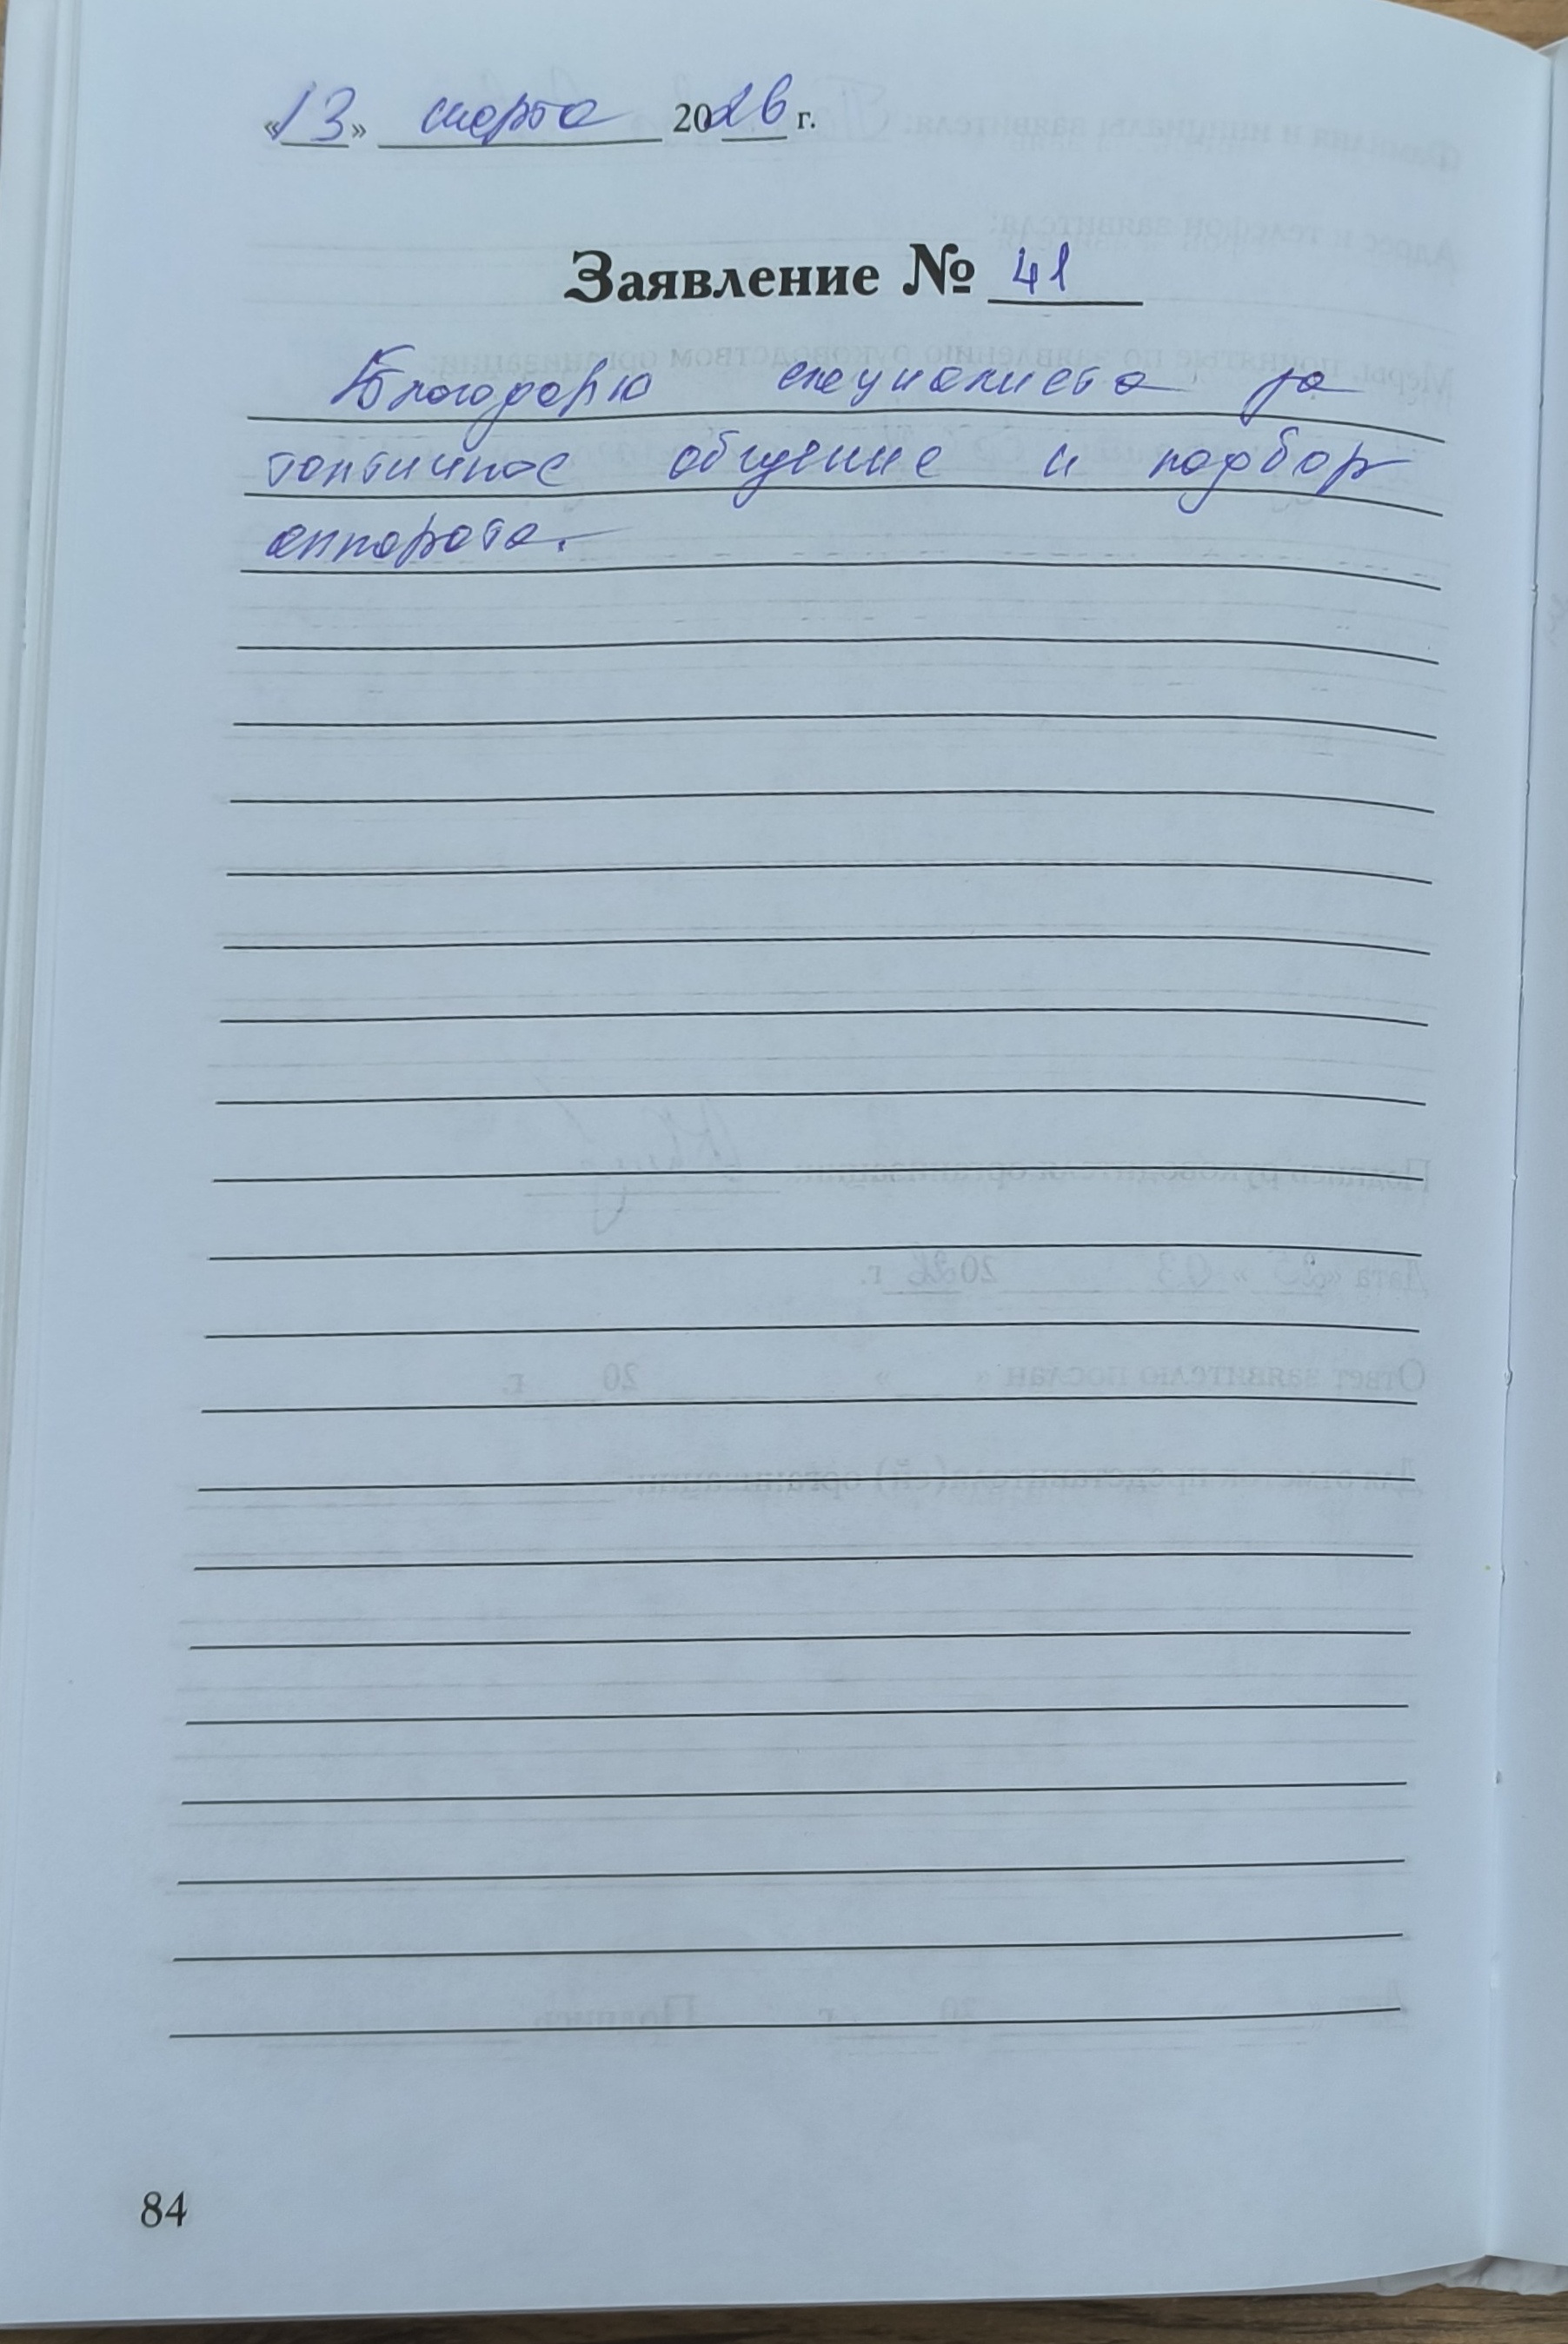 «13» марта 2026 г.
Заявление № 41
Благодарю специалиста за
тактичное общение и подбор
аппарата.
84